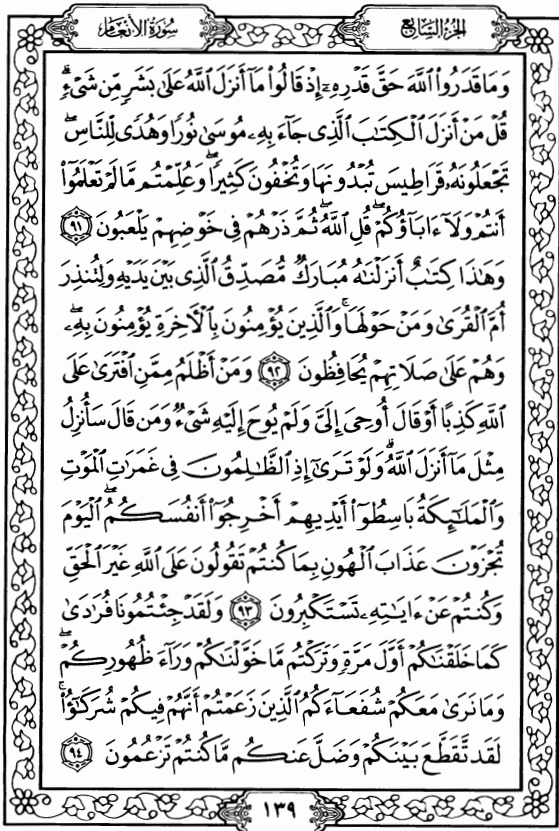 سُورَةُ الأَنْعَام
الجُزْءُ السَّابِع
وَمَا قَدَرُوا۟ ٱللَّهَ حَقَّ قَدْرِهِۦٓ إِذْ قَالُوا۟ مَآ أَنزَلَ ٱللَّهُ عَلَىٰ بَشَرٍ مِّن شَىْءٍ ۗ
قُلْ مَنْ أَنزَلَ ٱلْكِتَٰبَ ٱلَّذِى جَآءَ بِهِۦ مُوسَىٰ نُورًا وَهُدًى لِّلنَّاسِ ۖ
تَجْعَلُونَهُۥ قَرَاطِيسَ تُبْدُونَهَا وَتُخْفُونَ كَثِيرًا ۖ وَعُلِّمْتُم مَّا لَمْ تَعْلَمُوٓا۟
أَنتُمْ وَلَآ ءَابَآؤُكُمْ ۖ قُلِ ٱللَّهُ ۖ ثُمَّ ذَرْهُمْ فِى خَوْضِهِمْ يَلْعَبُونَ ٩١
وَهَٰذَا كِتَٰبٌ أَنزَلْنَٰهُ مُبَارَكٌ مُّصَدِّقُ ٱلَّذِى بَيْنَ يَدَيْهِ وَلِتُنذِرَ
أُمَّ ٱلْقُرَىٰ وَمَنْ حَوْلَهَا ۚ وَٱلَّذِينَ يُؤْمِنُونَ بِٱلْءَاخِرَةِ يُؤْمِنُونَ بِهِۦ ۖ
وَهُمْ عَلَىٰ صَلَاتِهِمْ يُحَافِظُونَ ٩٢ وَمَنْ أَظْلَمُ مِمَّنِ ٱفْتَرَىٰ عَلَى
ٱللَّهِ كَذِبًا أَوْ قَالَ أُوحِىَ إِلَىَّ وَلَمْ يُوحَ إِلَيْهِ شَىْءٌ وَمَن قَالَ سَأُنزِلُ
مِثْلَ مَآ أَنزَلَ ٱللَّهُ ۗ وَلَوْ تَرَىٰٓ إِذِ ٱلظَّٰلِمُونَ فِى غَمَرَٰتِ ٱلْمَوْتِ
وَٱلْمَلَٰٓئِكَةُ بَاسِطُوٓا۟ أَيْدِيهِمْ أَخْرِجُوٓا۟ أَنفُسَكُمُ ۖ ٱلْيَوْمَ
تُجْزَوْنَ عَذَابَ ٱلْهُونِ بِمَا كُنتُمْ تَقُولُونَ عَلَى ٱللَّهِ غَيْرَ ٱلْحَقِّ
وَكُنتُمْ عَنْ ءَايَٰتِهِۦ تَسْتَكْبِرُونَ ٩٣ وَلَقَدْ جِئْتُمُونَا فُرَٰدَىٰ
كَمَا خَلَقْنَٰكُمْ أَوَّلَ مَرَّةٍ وَتَرَكْتُم مَّا خَوَّلْنَٰكُمْ وَرَآءَ ظُهُورِكُمْ ۖ
وَمَا نَرَىٰ مَعَكُمْ شُفَعَآءَكُمُ ٱلَّذِينَ زَعَمْتُمْ أَنَّهُمْ فِيكُمْ شُرَكَٰٓؤُا۟ ۚ
لَقَد تَّقَطَّعَ بَيْنَكُمْ وَضَلَّ عَنكُم مَّا كُنتُمْ تَزْعُمُونَ ٩٤
١٣٩